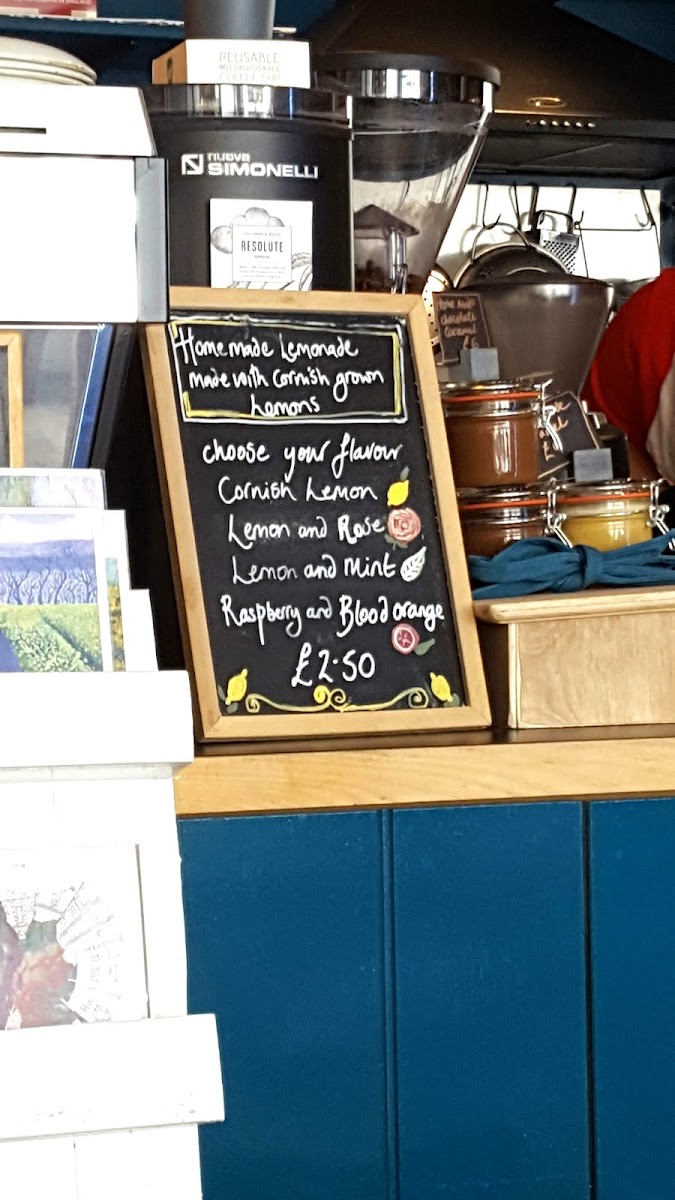 REUSABLE
NOT DISPOSABLE
COFFEE CUP
nuova
SIMONELLI
RESOLUTE
Homemade Lemonade
made with Cornish grown
Lemons
choose your flavour
Cornish Lemon
Lemon and Rose
Lemon and Mint
Raspberry and Blood orange
£2.50
chocolate
Caramel